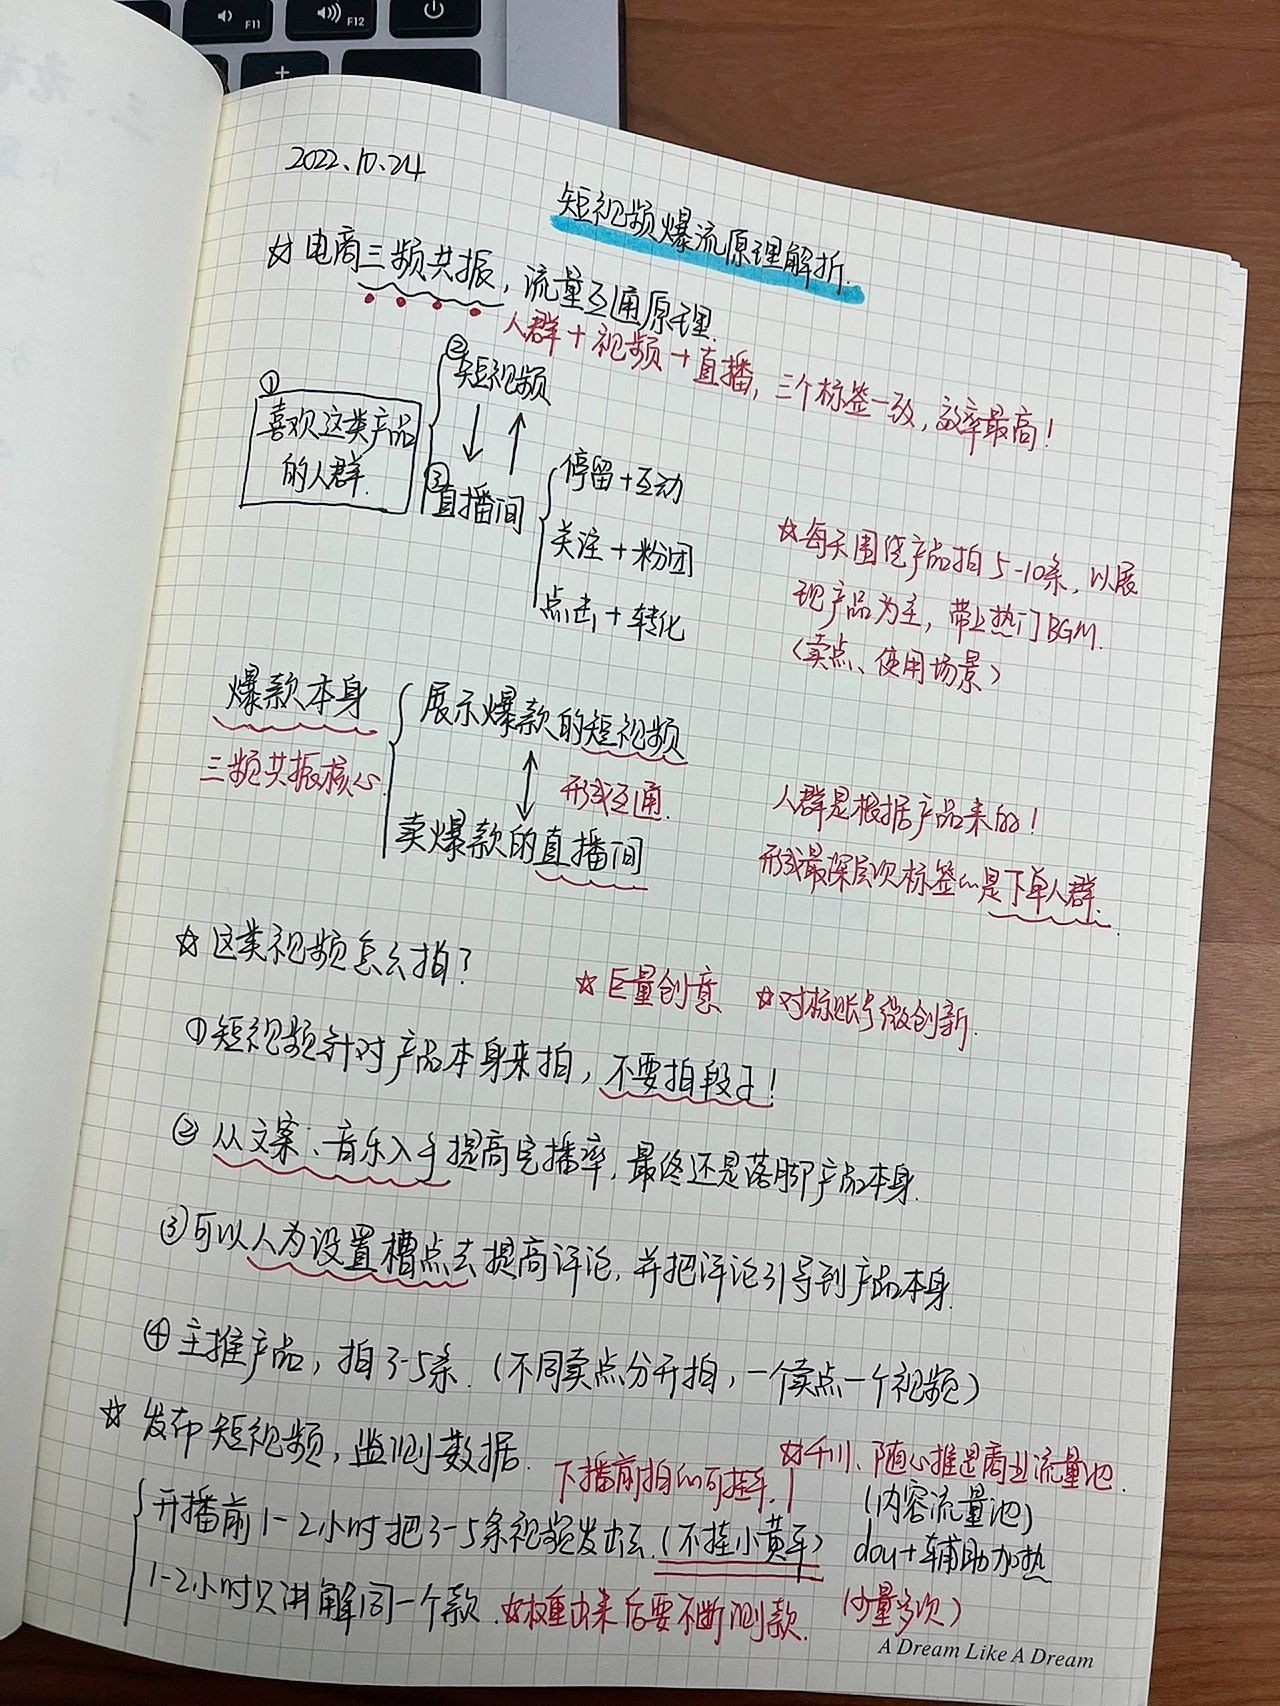 F11
F12
2022.10.24
短视频爆流原理解析.
☆电商三频共振，流量互通原理.
人群+视频+直播，三个标签一致，效率最高！
①
喜欢这类产品
的人群.
②
短视频
③
直播间
停留+互动
关注+粉团
点击+转化
☆每天围绕产品拍5-10条，以展
现产品为主，带上热门BGM.
（卖点、使用场景）
爆款本身
三频共振核心
展示爆款的短视频
形成互通.
卖爆款的直播间
人群是根据产品来的！
形成最深层次标签的是下单人群.
☆这类视频怎么拍？
☆巨量创意 ☆对标账号微创新.
①短视频针对产品本身来拍，不要拍段子！
②从文案、音乐入手提高完播率，最终还是落脚产品本身.
③可以人为设置槽点去提高评论，并把评论引导到产品本身.
④主推产品，拍3-5条.（不同卖点分开拍，一个卖点一个视频）
☆发布短视频，监测数据.
下播前拍的可挂车.！
☆千川、随心推是商业流量池.
（内容流量池）
开播前1-2小时把3-5条视频发出去.（不挂小黄车）
dou+辅助加热
1-2小时只讲解同一个款.☆权重出来后要不断测款.
（少量多次）
A Dream Like A Dream